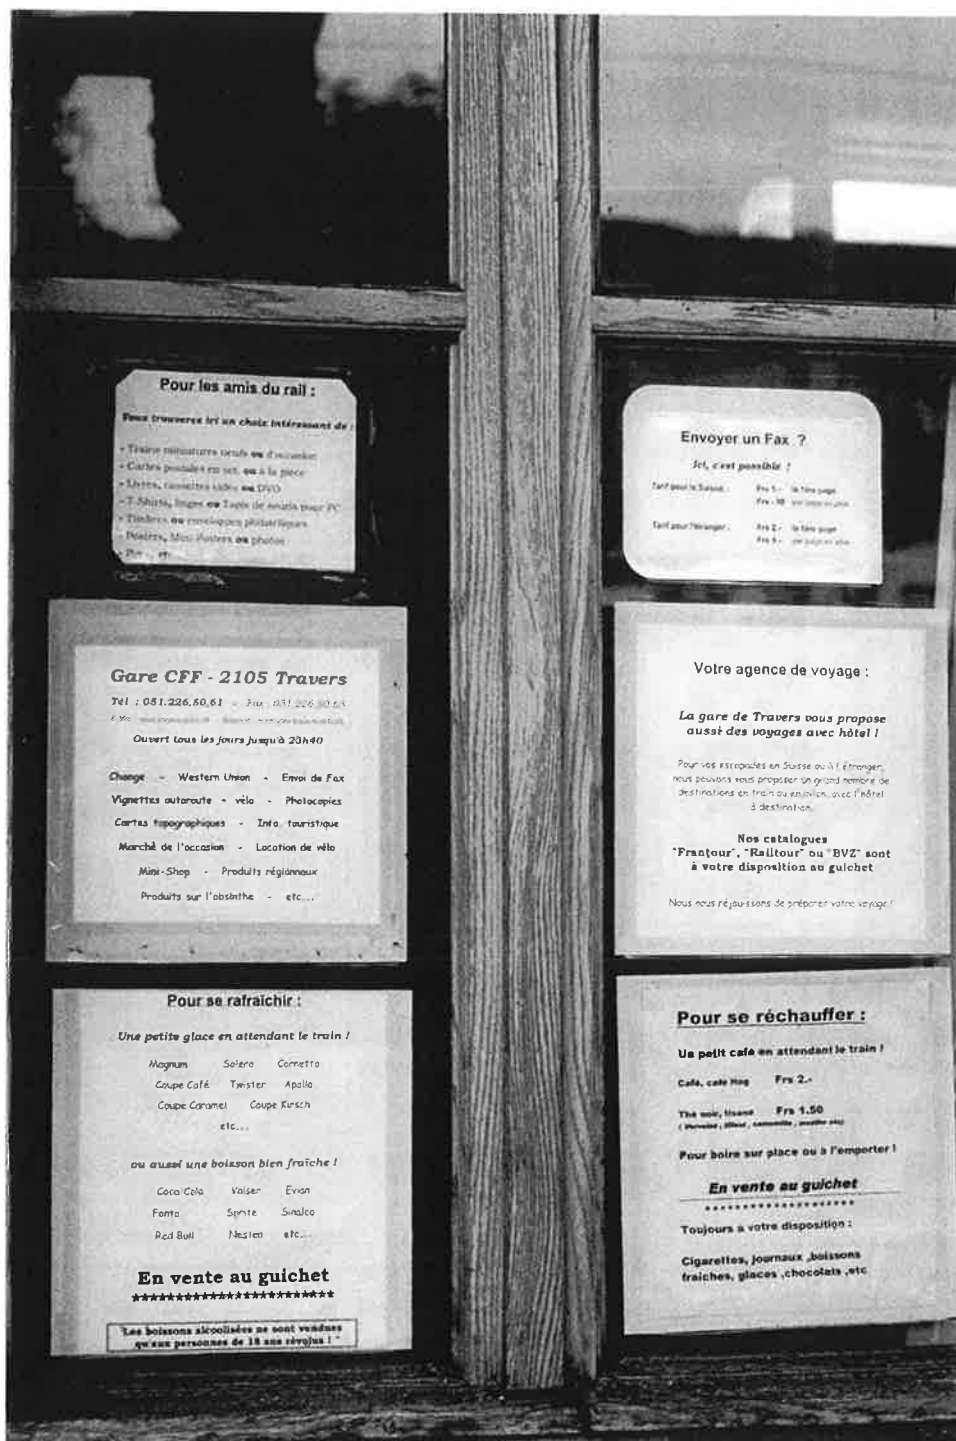 Pour les amis du rail :
Vous trouverez ici un choix intéressant de :
- Trains miniatures neufs ou d'occasion
- Cartes postales en set, ou à la pièce
- Livres, cassettes vidéo ou DVD
- T-Shirts, linges ou Tapis de souris pour PC
- Timbres ou enveloppes philatéliques
- Posters, Mini Posters ou photos
etc
Gare CFF - 2105 Travers
Tél : 051.226.50.61 - Fax : 051 226 50 63
Ouvert tous les jours jusqu'à 20h40
Change - Western Union - Envoi de Fax
Vignettes autoroute - vélo - Photocopies
Cartes topographiques - Info touristique
Marché de l'occasion - Location de vélo
Mini-Shop - Produits régionnaux
Produits sur l'absinthe - etc...
Pour se rafraîchir :
Une petite glace en attendant le train !
Magnum Solero Cornetto
Coupe Café Twister Apollo
Coupe Caramel Coupe Kirsch
etc...
ou aussi une boisson bien fraîche !
Coca Cola Valser Evian
Fanta Sprite Sinalco
Red Bull Nestea etc...
En vente au guichet
***********************
"Les boissons alcoolisées ne sont vendues
qu'aux personnes de 18 ans révolus ! "
Envoyer un Fax ?
Ici, c'est possible !
Tarif pour la Suisse : Frs 1.- la 1ère page
par page en plus
Tarif pour l'étranger : Frs 2.- la 1ère page
Frs 1.- par page en plus
Votre agence de voyage :
La gare de Travers vous propose
aussi des voyages avec hôtel !
Pour vos escapades en Suisse ou à l'étranger,
nous pouvons vous proposer un grand nombre de
destinations en train ou en avion, avec l'hôtel
à destination.
Nos catalogues
"Frantour", "Railtour" ou "BVZ" sont
à votre disposition au guichet
Nous nous réjouissons de préparer votre voyage !
Pour se réchauffer :
Un petit café en attendant le train !
Café, café Hag Frs 2.-
Thé noir, tisane Frs 1.50
( Verveine , tilleul , camomille , menthe etc)
Pour boire sur place ou à l'emporter !
En vente au guichet
********************
Toujours à votre disposition :
Cigarettes, journaux ,boissons
fraîches, glaces ,chocolats ,etc